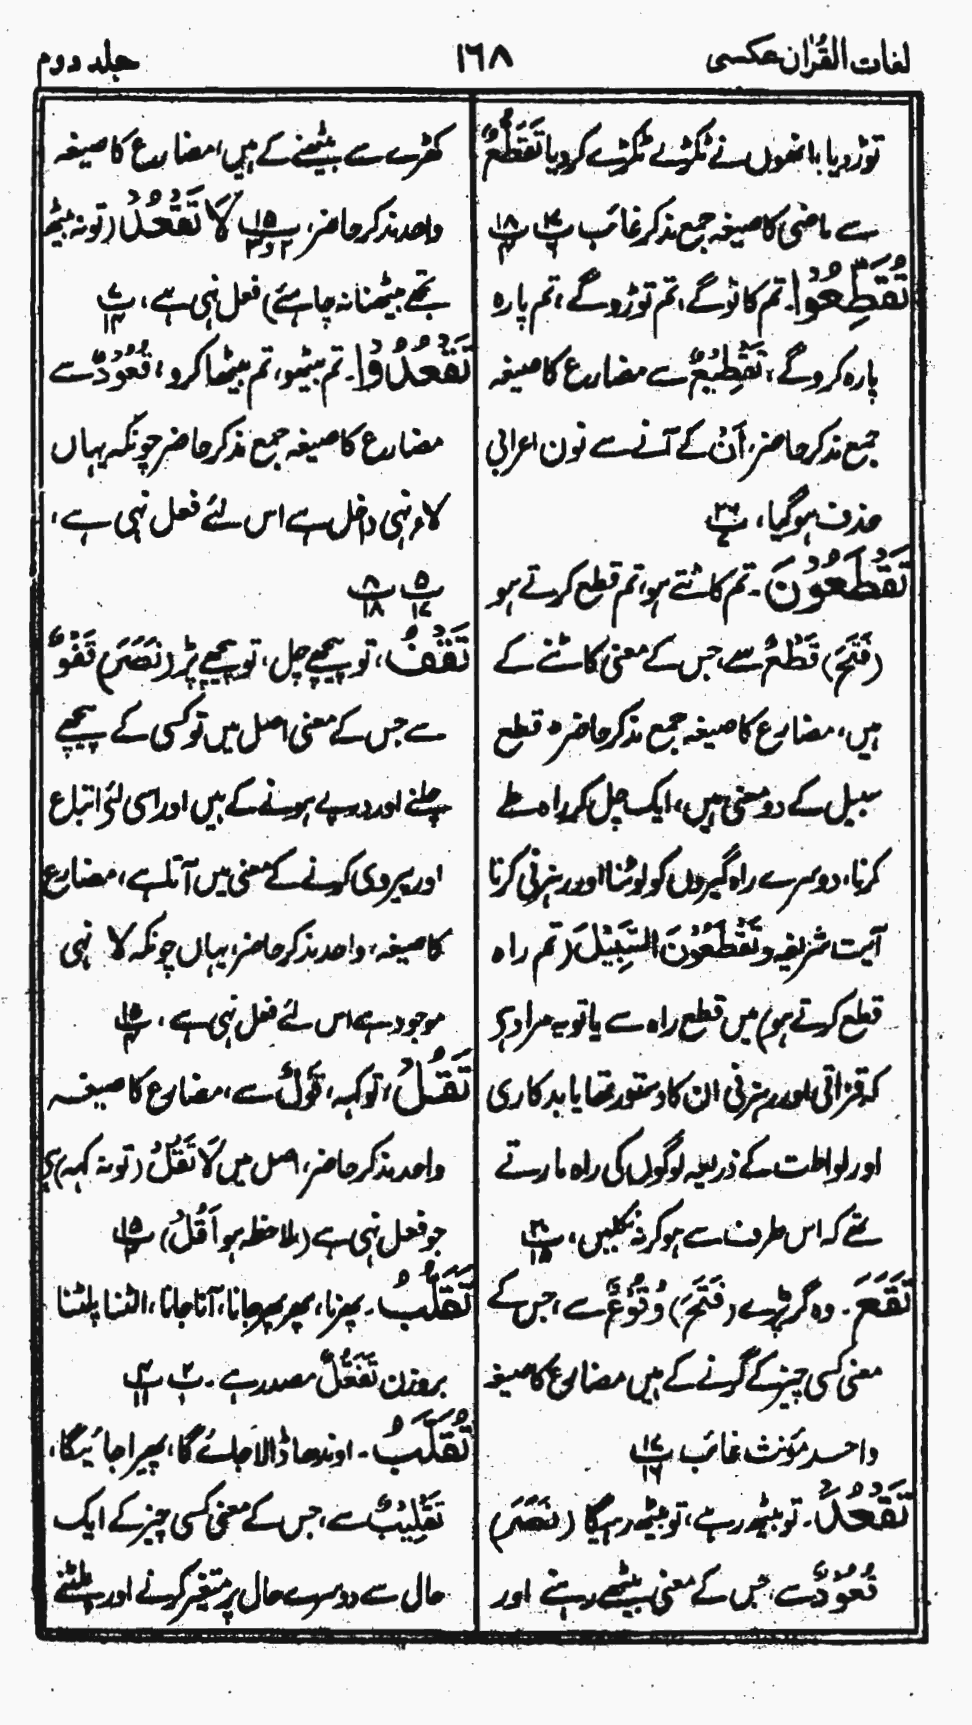 لغات القرآن عکسی
۱۶۸
جلد دوم
توڑ دیا، انھوں نے ٹکڑے ٹکڑے کر دیا تَقَطُّعٌ
سے ماضی کا صیغہ جمع مذکر غائب پ پ
تُقَطِّعُوا۔ تم کاٹو گے، تم توڑو گے، تم پارہ
پارہ کرو گے، تَقْطِیْعٌ سے مضارع کا صیغہ
جمع مذکر حاضر، اَنْ کے آنے سے نون اعرابی
حذف ہو گیا، پ ۲۶ ۷
تَقْطَعُوْنَ۔ تم کاٹتے ہو، تم قطع کرتے ہو
(فَتَحَ) قَطْعٌ سے، جس کے معنی کاٹنے کے
ہیں، مضارع کا صیغہ جمع مذکر حاضر، قطع
سبیل کے دو معنی ہیں، ایک چل کر راہ طے
کرنا، دوسرے راہ گیروں کو لوٹنا اور رہزنی کرنا
آیت شریفہ وَتَقْطَعُوْنَ السَّبِیْلَ (تم راہ
قطع کرتے ہو) میں قطع راہ سے یا تو یہ مراد ہے
کہ قزاقی اور رہزنی ان کا دستور تھا یا بدکاری
اور لواطت کے ذریعہ لوگوں کی راہ مارتے
تھے کہ اس طرف سے ہو کر نہ نکلیں، پ ۲۰ ۱۵
تَقَعَ۔ وہ گر پڑے (فَتَحَ) وُقُوْعٌ سے، جس کے
معنی کسی چیز کے گرنے کے ہیں مضارع کا صیغہ
واحد مؤنث غائب پ ۱۷ ۱۶
تَقْعُدَ۔ تو بیٹھ رہے، تو بیٹھ رہیگا (نَصَرَ)
قُعُوْدٌ سے، جس کے معنی بیٹھے رہنے اور
کھڑے سے بیٹھنے کے ہیں، مضارع کا صیغہ
واحد مذکر حاضر، پ ۱۵ ۲ و ۳ لَا تَقْعُدْ (تو نہ بیٹھ
تجھے بیٹھنا نہ چاہئے) فعل نہی ہے، پ ۷ ۱۴
تَقْعُدُوْا۔ تم بیٹھو، تم بیٹھا کرو، قُعُوْدٌ سے
مضارع کا صیغہ جمع مذکر حاضر چونکہ یہاں
لاء نہی داخل ہے اس لئے فعل نہی ہے،
پ ۵ ۱۷ پ ۸ ۱۸
تَقْفُ، تو پیچھے چل، تو پیچھے پڑ (نَصَرَ) قَفْوٌ
سے جس کے معنی اصل میں تو کسی کے پیچھے
چلنے اور درپے ہونے کے ہیں اور اسی لئے اتباع
اور پیروی کرنے کے معنی میں آتا ہے، مضارع
کا صیغہ، واحد مذکر حاضر، یہاں چونکہ لا نہی
موجود ہے اس لئے فعل نہی ہے، پ ۱۵ ۴
تَقُلْ، تو کہہ، قَوْلٌ سے، مضارع کا صیغہ
واحد مذکر حاضر، اصل میں لَا تَقُلْ (تو نہ کہہ) ہے
جو فعل نہی ہے (ملاحظہ ہو اَقُلْ) پ ۱۵
تَقَلُّبُ۔ پھرنا، پھر پھر جانا، آنا جانا، الٹنا پلٹنا
بروزن تَفَعُّلٌ مصدر ہے۔ پ ۲ ۱ پ ۴ ۱۱
تُقَلَّبُ۔ اوندھا ڈالا جائے گا، پھیرا جائیگا،
تَقْلِیْبٌ سے، جس کے معنی کسی چیز کے ایک
حال سے دوسرے حال پر متغیر کرنے اور پلٹنے